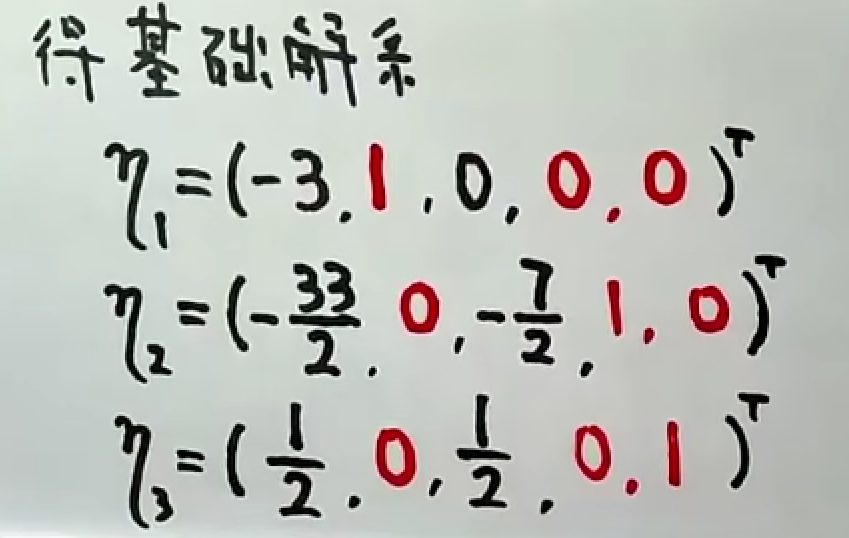 得基础解系
η₁=(-3,1,0,0,0)ᵀ
η₂=(-33/2,0,-7/2,1,0)ᵀ
η₃=(1/2,0,1/2,0,1)ᵀ